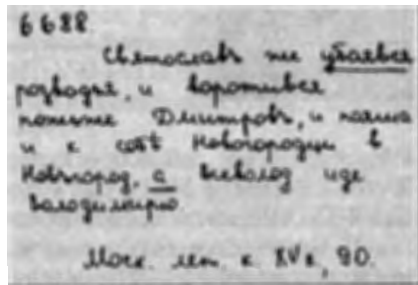 6688
Святославъ же убаявся
розводья, и воротився
пожьже Дмитровъ, и пояша
и к собѣ Новогородци в
Новъгород, а Всеволод иде
Володимирю.
Моск. лет. к. XV в, 90.